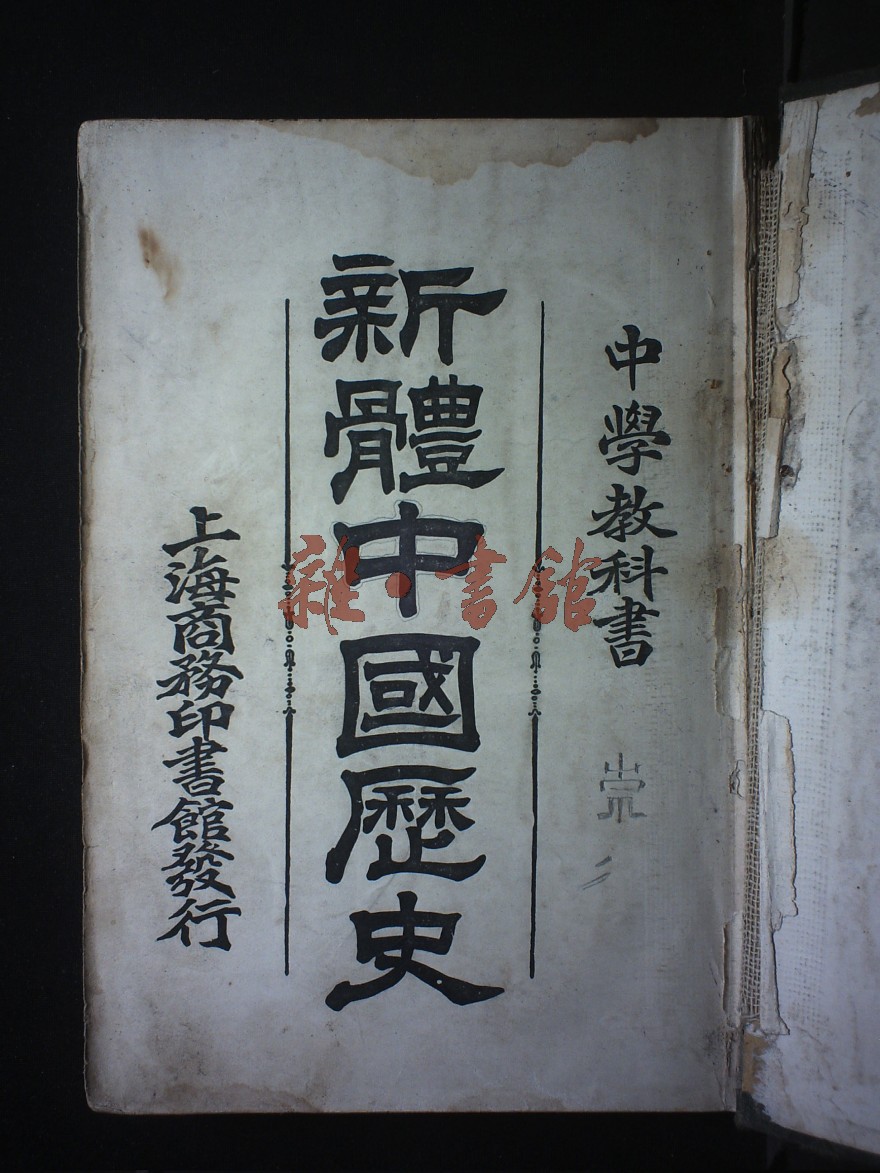 中學教科書
新體中國歷史
上海商務印書館發行
雜·書館